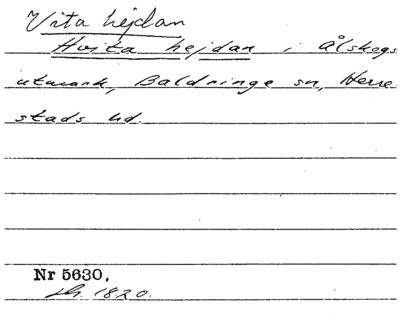 Vita hejdan
Hvita hejdan i Ålskogs
utmark, Baldringe sn, Herre
stads hd.
Nr 5630.
1820.